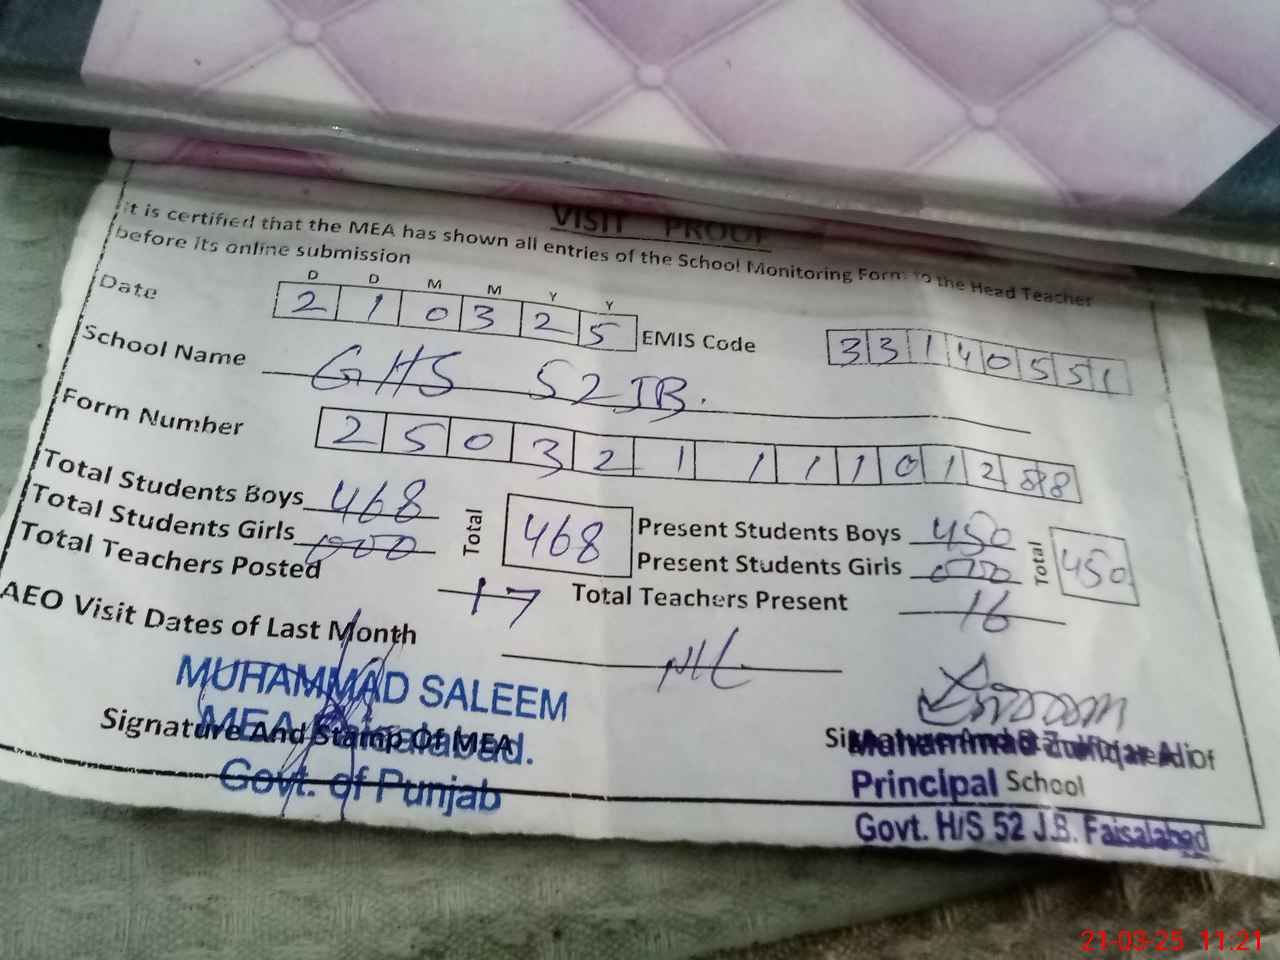 VISIT PROOF
It is certified that the MEA has shown all entries of the School Monitoring Form to the Head Teacher
before its online submission
D D M M Y Y
Date 2 1 0 3 2 5 EMIS Code 3 3 1 4 0 5 5 1
School Name GHS 52 JB.
Form Number 2 5 0 3 2 1 1 1 1 0 1 2 8 8
Total Students Boys 468 Total 468 Present Students Boys 450 Total 450
Total Students Girls 000 Present Students Girls 000
Total Teachers Posted 17 Total Teachers Present 16
AEO Visit Dates of Last Month Nil
MUHAMMAD SALEEM
MEA Faisalabad.
Govt. of Punjab
Signature And Stamp Of MEA
Muhammad Zulfiqar Ali
Principal
Govt. H/S 52 J.B. Faisalabad
of
School
21-03-25 11:21